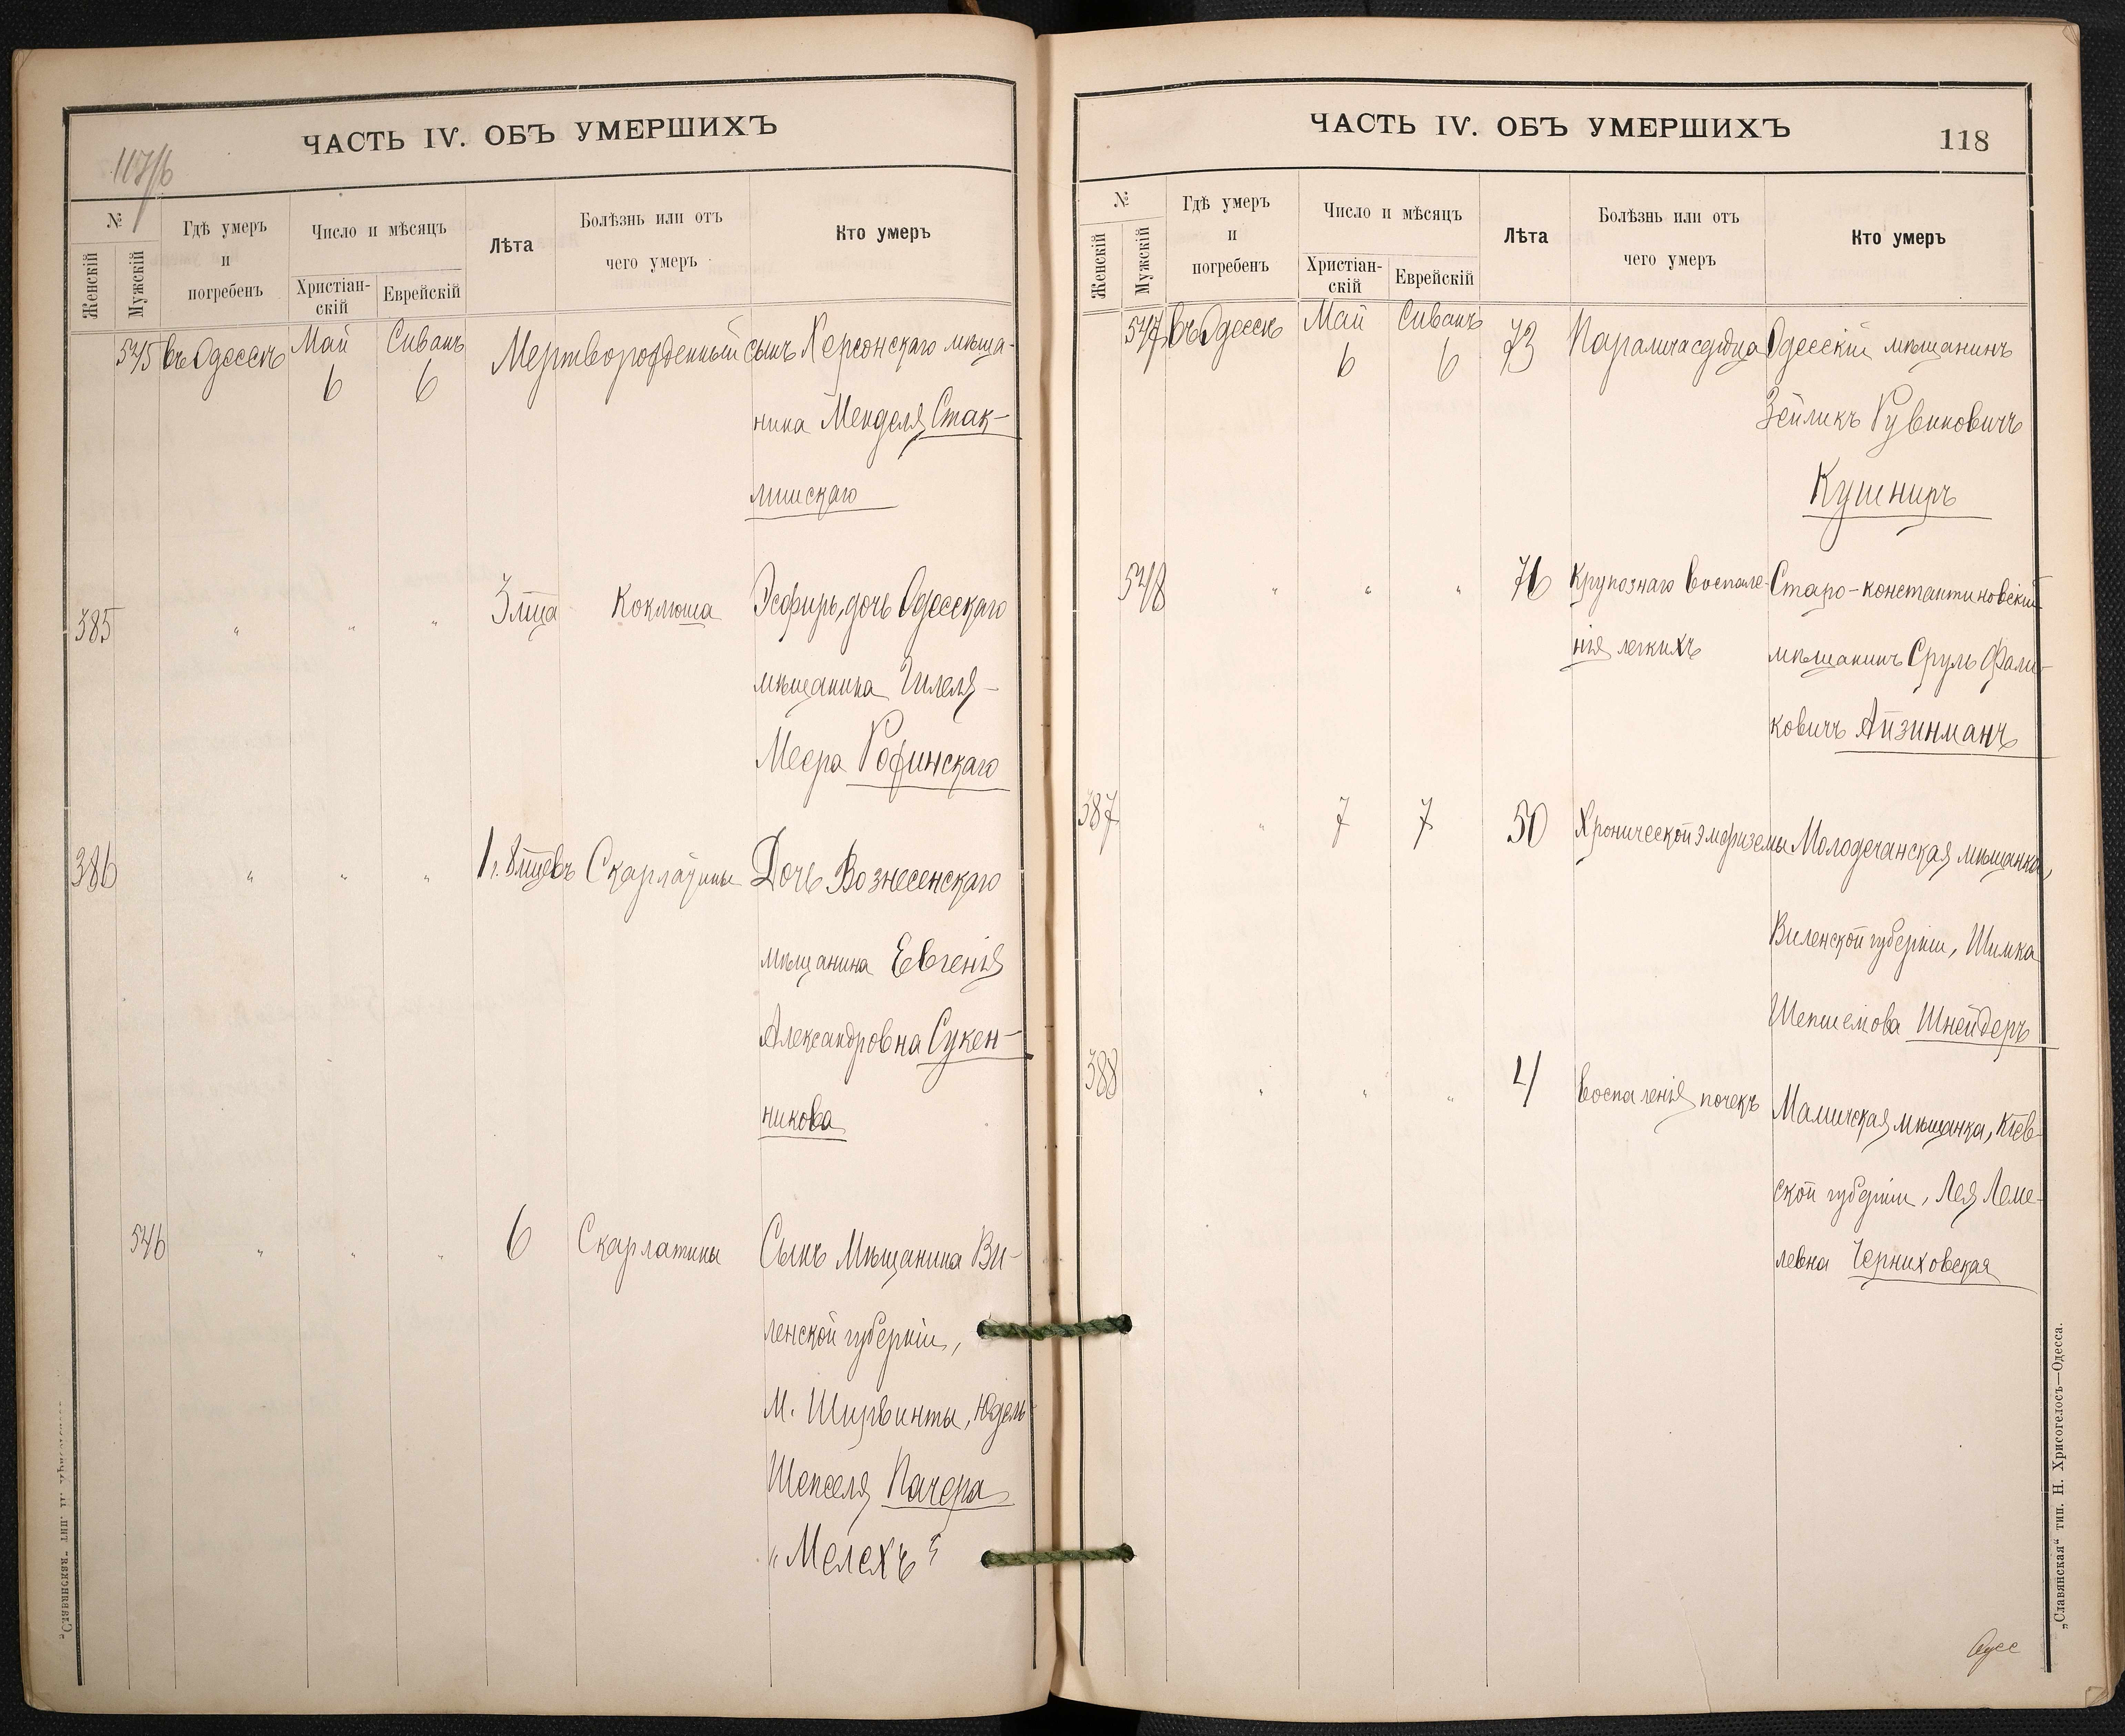 117/б
ЧАСТЬ IV. ОБЪ УМЕРШИХЪ
№
Женскій
Мужскій
Гдѣ умеръ
и
погребенъ
Число и мѣсяцъ
Христіан-
скій
Еврейскій
Лѣта
Болѣзнь или отъ
чего умеръ
Кто умеръ
545 въ Одессѣ Май Сиванъ Мертворожденный сынъ Херсонскаго мѣща-
6 6
нина Менделя Стак-
лишскаго
385 " " " 3 м́ца Коклюша Эсфирь, дочь Одесскаго
мѣщанина Гилеля-
Меера Рофинскаго
386 " " " 1 г. 8 м́цевъ Скарлатины Дочь Вознесенскаго
мѣщанина Евгенія
Александровна Сукен-
никова
546 " " " 6 Скарлатины Сынъ Мѣщанина Ви-
ленской губерніи,
М. Ширвинты, Юдель-
Шепселя Пачера
"Мелехъ"
„Славянская“ тип. Н. Хрисогелосъ
ЧАСТЬ IV. ОБЪ УМЕРШИХЪ
118
№
Женскій
Мужскій
Гдѣ умеръ
и
погребенъ
Число и мѣсяцъ
Христіан-
скій
Еврейскій
Лѣта
Болѣзнь или отъ
чего умеръ
Кто умеръ
547 въ Одессѣ Май Сиванъ 73 Паралича сердца Одесскій мѣщанинъ
6 6
Зейликъ Рувиновичъ
Кушниръ
548 " " " 76 Крупознаго воспале- Старо-константиновскій
нія легкихъ мѣщанинъ Сруль Фали-
ковичъ Айзинманъ
387 " 7 7 50 Хронической эмфиземы Молодечанская мѣщанка,
Виленской губерніи, Шимка
Шепшелова Шнейдеръ
388 " " " 4 Воспаленія почекъ
мѣщанка, Кіев-
ской губерніи, Лея Леме-
левна Черниховская
Одес
„Славянская“ тип. Н. Хрисогелосъ—Одесса.